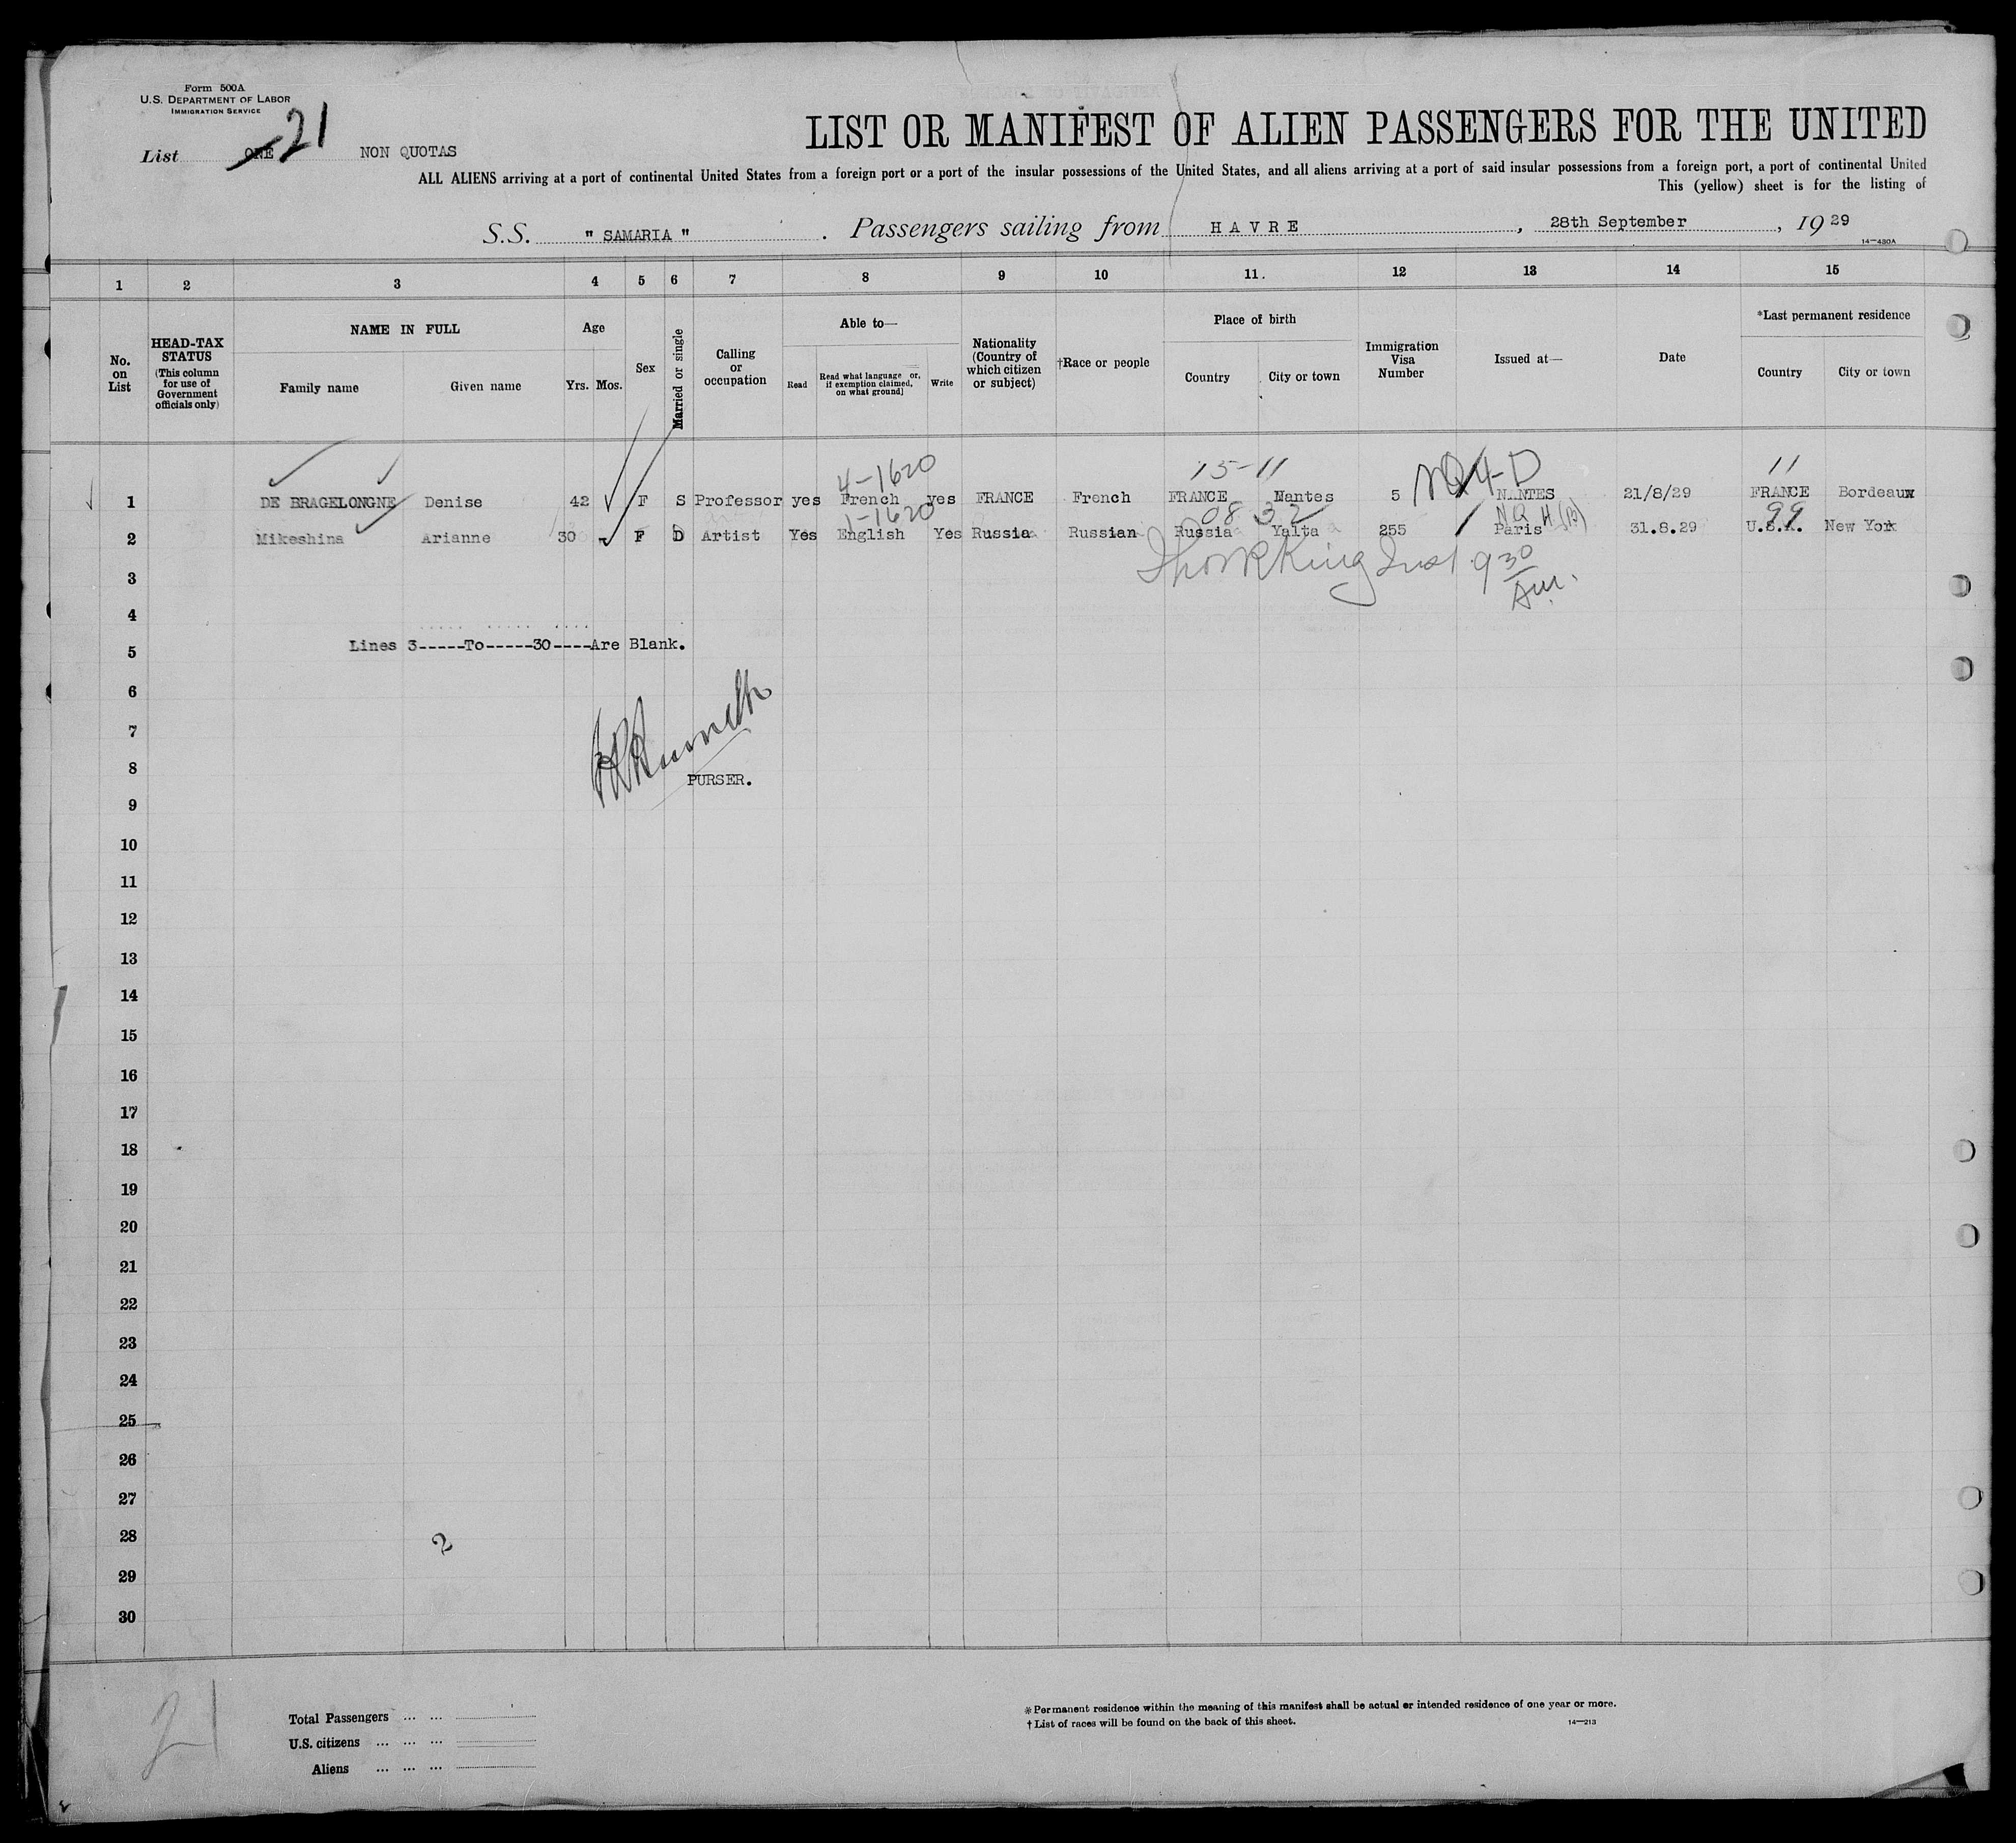 Form 500A
U.S. DEPARTMENT OF LABOR
IMMIGRATION SERVICE
List ONE 21 NON QUOTAS
LIST OR MANIFEST OF ALIEN PASSENGERS FOR THE UNITED
ALL ALIENS arriving at a port of continental United States from a foreign port or a port of the insular possessions of the United States, and all aliens arriving at a port of said insular possessions from a foreign port, a port of continental United
This (yellow) sheet is for the listing of
S.S. " SAMARIA " . Passengers sailing from HAVRE , 28th September , 19 29
14—430A
1 2 3 4 5 6 7 8 9 10 11. 12 13 14 15
No. on List
HEAD-TAX STATUS (This column for use of Government officials only)
NAME IN FULL
Family name Given name
Age
Yrs. Mos.
Sex
Married or single
Calling or occupation
Able to—
Read Read what language or, if exemption claimed, on what ground] Write
Nationality (Country of which citizen or subject)
†Race or people
Place of birth
Country City or town
Immigration Visa Number
Issued at—
Date
*Last permanent residence
Country City or town
4-1620 15-11 NQ 4-D 11
1 DE BRAGELONGNE Denise 42 F S Professor yes French yes FRANCE French FRANCE Nantes 5 NANTES 21/8/29 FRANCE Bordeaux
1-1620 08 32 NQ H (B) 99
2 Mikeshina Arianne 30 F D Artist Yes English Yes Russia Russian Russia Yalta 255 Paris 31.8.29 U.S.A. New York
King 9 30 AM.
3
4
Lines 3-----To-----30----Are Blank.
5
6
7
8
PURSER.
9
10
11
12
13
14
15
16
17
18
19
20
21
22
23
24
25
26
27
28
2
29
30
21
Total Passengers ... ...
U.S. citizens ... ... ...
Aliens ... ... ...
* Permanent residence within the meaning of this manifest shall be actual or intended residence of one year or more.
† List of races will be found on the back of this sheet.
14—213